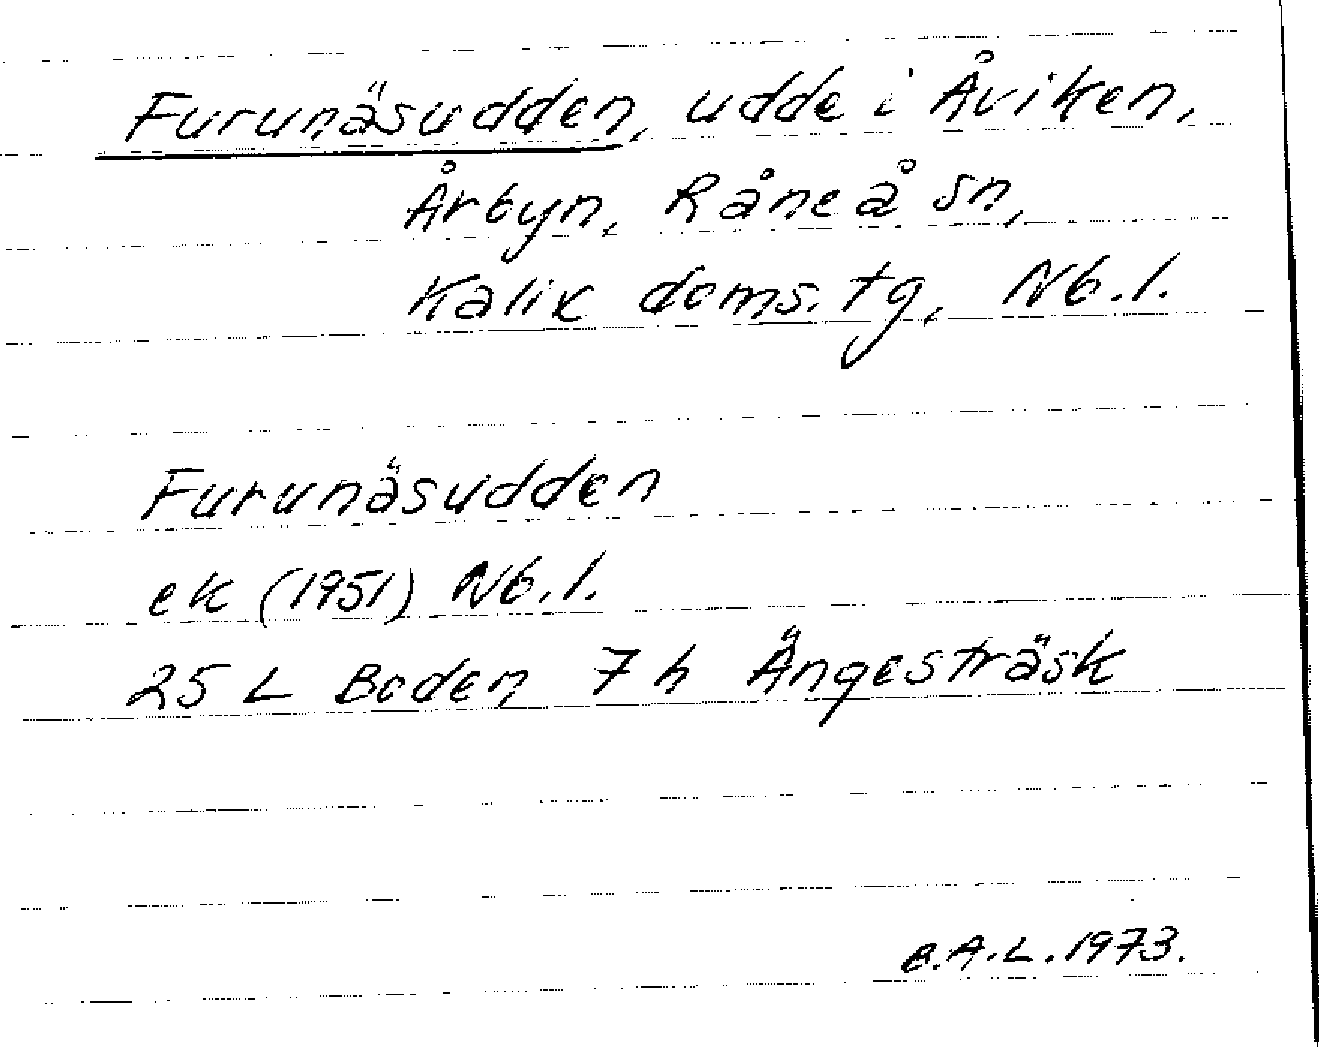 Furunäsudden, udde i Åviken,
Årbyn, Råneå sn,
Kalix doms. tg, Nb.l.
Furunäsudden
ek (1951) Nb.l.
25 L Boden 7 h Ängesträsk
B.A.L. 1973.